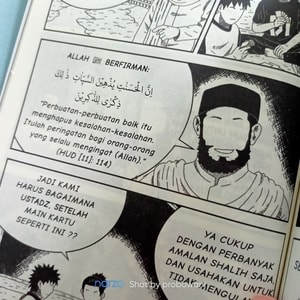 ALLAH ﷻ BERFIRMAN:
إِنَّ الْحَسَنَاتِ يُذْهِبْنَ السَّيِّئَاتِ ذَٰلِكَ
ذِكْرَىٰ لِلذَّاكِرِينَ
"Perbuatan-perbuatan baik itu
menghapus kesalahan-kesalahan.
Itulah peringatan bagi orang-orang
yang selalu mengingat (Allah)."
(HUD [11]: 114)
JADI KAMI
HARUS BAGAIMANA
USTADZ, SETELAH
MAIN KARTU
SEPERTI INI ??
YA CUKUP
DENGAN PERBANYAK
AMALAN SHALIH SAJA.
DAN USAHAKAN UNTUK
narzo Shot by